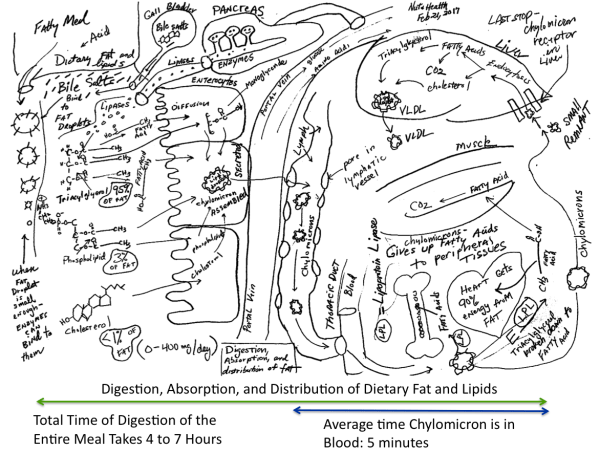 Fatty Meal
Acid
Dietary Fat and
Lipids
Gall Bladder
Bile salts
PANCREAS
ENZYMES
Lipases
ENTEROCYTES
Monoglyceride
Bile Salts
Bind
to
FAT
Droplets
LIPASES
DIFFUSION
FATTY
Acid
Triacylglycerol
95%
OF FAT
Phospholipid
3%
OF FAT
Cholesterol
<1% OF
FAT
(0-400 mg/day)
when
FAT
Droplet
is
small
enough-
ENZYMES
CAN
Bind to
them
chylomicron
ASSEMBLED
Secreted
Phospholipid
cholesterol
Portal Vein
PORTAL VEIN
Blood
Amino Acids
Digestion,
Absorption, and
distribution of fat
Lymph
Chylomicrons
pore in
lymphatic
vessel
THORACIC DUCT
Blood
Feb 21, 2017
LAST STOP -
chylomicron
receptor
on
Liver
LIVER
Endocytosis
Triacylglycerol
FATTY Acids
CO2
cholesterol
VLDL
VLDL
SMALL
Remnant
Muscle
FATTY Acid
CO2
chylomicrons-
Gives up Fatty Acids
to peripheral
TISSUES
LPL = Lipoprotein Lipase
Fatty Acids
HEART Gets
90%
energy from
FAT
FATTY
ACID
LPL
LPL
Triacylglycerol
broken down to
FATTY ACID
chylomicrons
Digestion, Absorption, and Distribution of Dietary Fat and Lipids
Total Time of Digestion of the
Entire Meal Takes 4 to 7 Hours
Average time Chylomicron is in
Blood: 5 minutes